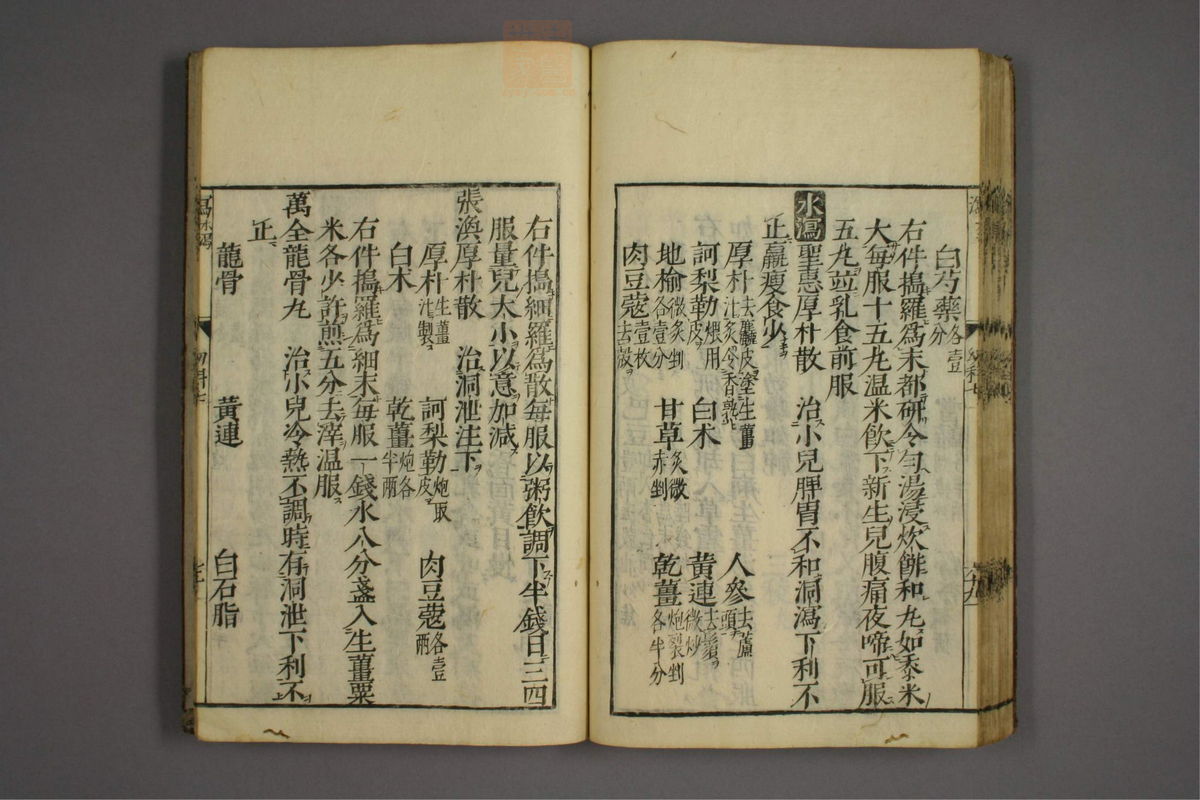 白芍藥各壹分
右件擣羅爲末都研令勻湯浸炊餠和丸如黍米
大每服十五丸温米飲下新生兒腹痛夜啼可服
五丸竝乳食前服
水瀉聖惠厚朴散　治小兒脾胃不和洞瀉下利不
止羸瘦食少
厚朴去麤皮塗生薑汁炙令香熟　人參去蘆頭
訶梨勒煨用皮　白朮　黃連去鬚微炒
地榆微炙剉各壹分　甘草炙微赤剉　乾薑炮裂剉各半分
肉豆蔻壹枚去殼
右件擣細羅爲散每服以粥飲調下半錢日三四
服量兒大小以意加減
張渙厚朴散　治洞泄注下
厚朴生薑汁製　訶梨勒炮取皮　肉豆蔻各壹兩
白朮　乾薑炮各半兩
右件擣羅爲細末每服一錢水八分盞入生薑粟
米各少許煎五分去滓温服
萬全龍骨丸　治小兒冷熱不調時有洞泄下利不
止
龍骨　黃連　白石脂